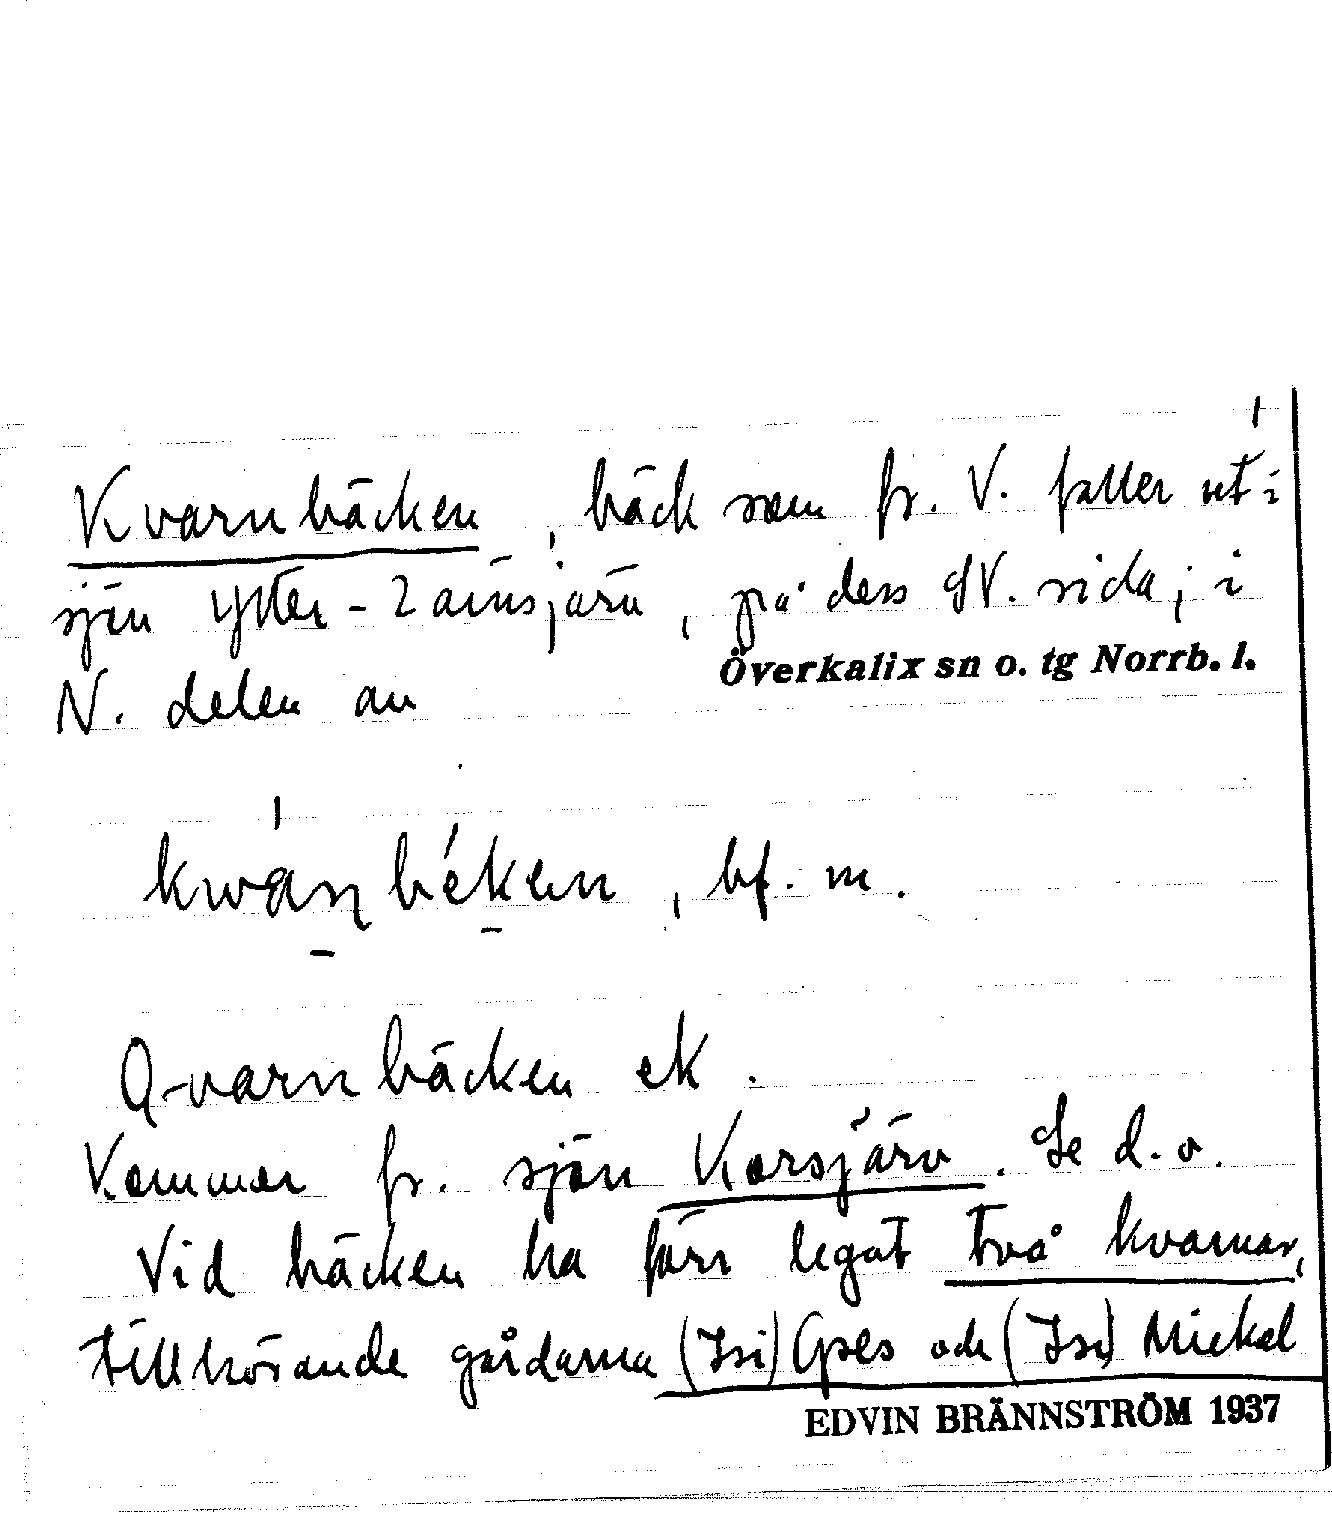 Kvarnbäcken, bäck som fr. V. faller ut i
sjön Ytter-Lainsjärv, på dess SV. sida; i
N. delen av
Överkalix sn o. tg Norrb. l.
bf. m.
Qvarnbäcken ek.
Kommer fr. sjön Korsjärv. Se d. o.
Vid bäcken ha förr legat två kvarnar,
tillhörande gårdarna (Isi) och (Isi) Mickel
EDVIN BRÄNNSTRÖM 1937